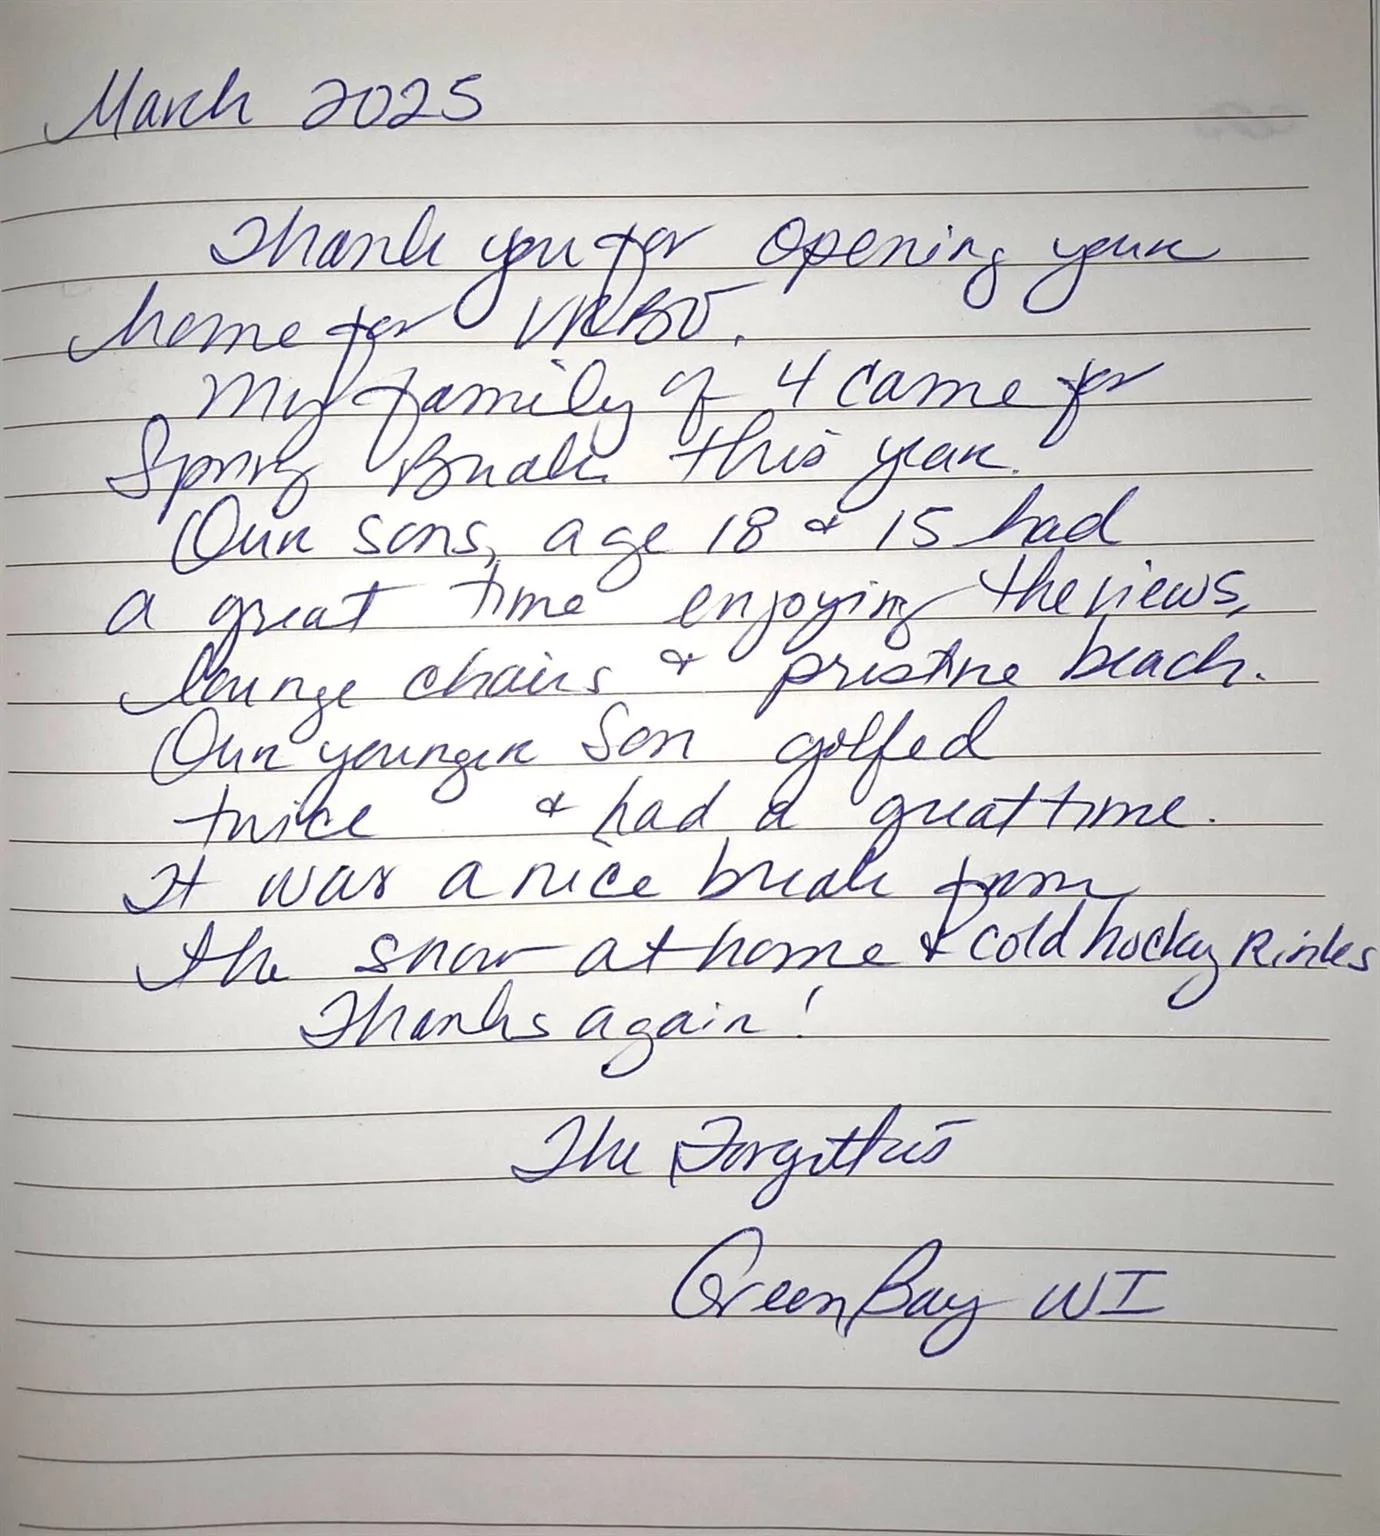 March 2025
Thank you for opening your
home for VRBO.
My family of 4 came for
Spring Break this year.
Our sons, age 18 & 15 had
a great time enjoying the views,
lounge chairs & pristine beach.
Our younger Son golfed
twice & had a great time.
It was a nice break from
the snow at home & cold hockey Rinks
Thanks again!
The
Green Bay WI